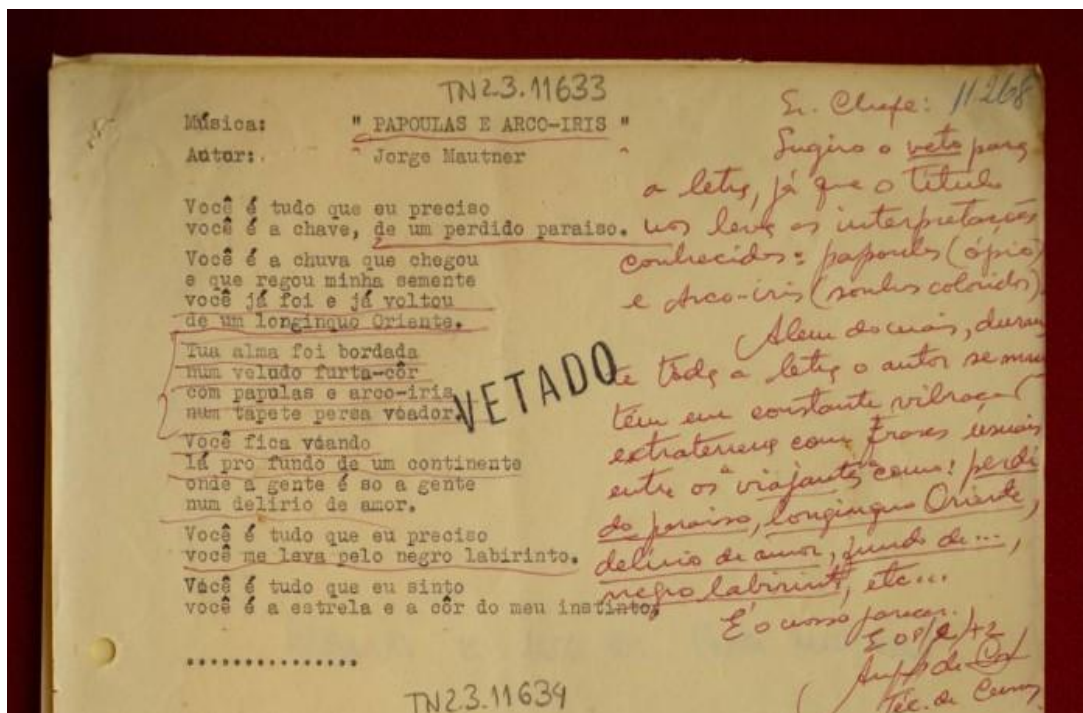 TN2.3.11633
11.268
Música: " PAPOULAS E ARCO-IRIS "
Autor: Jorge Mautner
Você é tudo que eu preciso
você é a chave, de um perdido paraiso.
Você é a chuva que chegou
e que regou minha semente
você já foi e já voltou
de um longinquo Oriente.
Tua alma foi bordada
num veludo furta-côr
com papulas e arco-iris
num tapete persa vóador.
Você fica vóando
lá pro fundo de um continente
onde a gente é so a gente
num delirio de amor.
Você é tudo que eu preciso
você me leva pelo negro labirinto.
Vócê é tudo que eu sinto
você é a estrela e a côr do meu instinto,
...............
VETADO
TN2.3.11634
Sr. Chefe:
Sugiro o veto para
a letra, já que o título
nos leva as interpretações
conhecidas: papoulas (ópio)
e Arco-iris (sonhos coloridos).
Alem do mais, duran
te toda a letra o autor se man
tém em constante vibração
extraterrena com frases usuais
entre os "viajantes" como: perdi
do paraiso, longinquo Oriente,
delirio de amor, fundo de...,
negro labirinto, etc...
É o nosso parecer.
Téc. de Censura